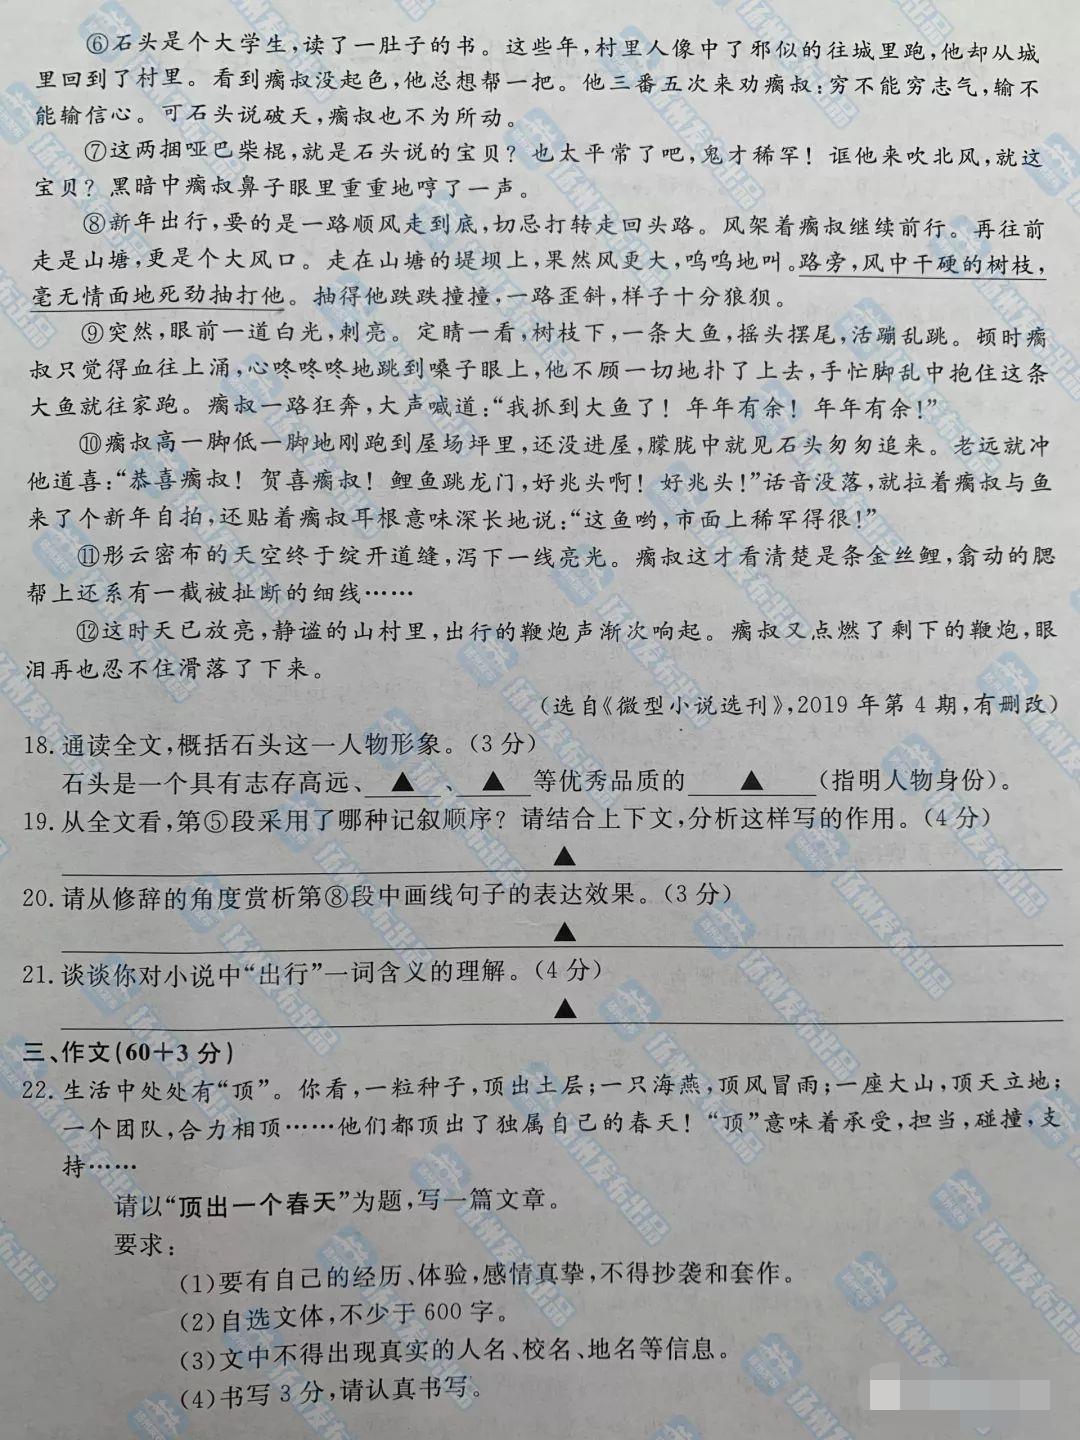 ⑥石头是个大学生，读了一肚子的书。这些年，村里人像中了邪似的往城里跑，他却从城
里回到了村里。看到瘸叔没起色，他总想帮一把。他三番五次来劝瘸叔：穷不能穷志气，输不
能输信心。可石头说破天，瘸叔也不为所动。
⑦这两捆哑巴柴棍，就是石头说的宝贝？也太平常了吧，鬼才稀罕！诓他来吹北风，就这
宝贝？黑暗中瘸叔鼻子眼里重重地哼了一声。
⑧新年出行，要的是一路顺风走到底，切忌打转走回头路。风架着瘸叔继续前行。再往前
走是山塘，更是个大风口。走在山塘的堤坝上，果然风更大，呜呜地叫。路旁，风中干硬的树枝，
毫无情面地死劲抽打他。抽得他跌跌撞撞，一路歪斜，样子十分狼狈。
⑨突然，眼前一道白光，刺亮。定睛一看，树枝下，一条大鱼，摇头摆尾，活蹦乱跳。顿时瘸
叔只觉得血往上涌，心咚咚咚地跳到嗓子眼上，他不顾一切地扑了上去，手忙脚乱中抱住这条
大鱼就往家跑。瘸叔一路狂奔，大声喊道：“我抓到大鱼了！年年有余！年年有余！”
⑩瘸叔高一脚低一脚地刚跑到屋场坪里，还没进屋，朦胧中就见石头匆匆追来。老远就冲
他道喜：“恭喜瘸叔！贺喜瘸叔！鲤鱼跳龙门，好兆头啊！好兆头！”话音没落，就拉着瘸叔与鱼
来了个新年自拍，还贴着瘸叔耳根意味深长地说：“这鱼哟，市面上稀罕得很！”
⑪彤云密布的天空终于绽开道缝，泻下一线亮光。瘸叔这才看清楚是条金丝鲤，翕动的腮
帮上还系有一截被扯断的细线……
⑫这时天已放亮，静谧的山村里，出行的鞭炮声渐次响起。瘸叔又点燃了剩下的鞭炮，眼
泪再也忍不住滑落了下来。
（选自《微型小说选刊》，2019年第4期，有删改）
18.通读全文，概括石头这一人物形象。（3分）
石头是一个具有志存高远、▲、▲等优秀品质的▲（指明人物身份）。
19.从全文看，第⑤段采用了哪种记叙顺序？请结合上下文，分析这样写的作用。（4分）
▲
20.请从修辞的角度赏析第⑧段中画线句子的表达效果。（3分）
▲
21.谈谈你对小说中“出行”一词含义的理解。（4分）
▲
三、作文（60＋3分）
22.生活中处处有“顶”。你看，一粒种子，顶出土层；一只海燕，顶风冒雨；一座大山，顶天立地；
一个团队，合力相顶……他们都顶出了独属自己的春天！“顶”意味着承受，担当，碰撞，支
持……
请以“顶出一个春天”为题，写一篇文章。
要求：
（1）要有自己的经历、体验，感情真挚，不得抄袭和套作。
（2）自选文体，不少于600字。
（3）文中不得出现真实的人名、校名、地名等信息。
（4）书写3分，请认真书写。
扬州发布出品